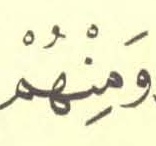 وَمِنْهُمْ